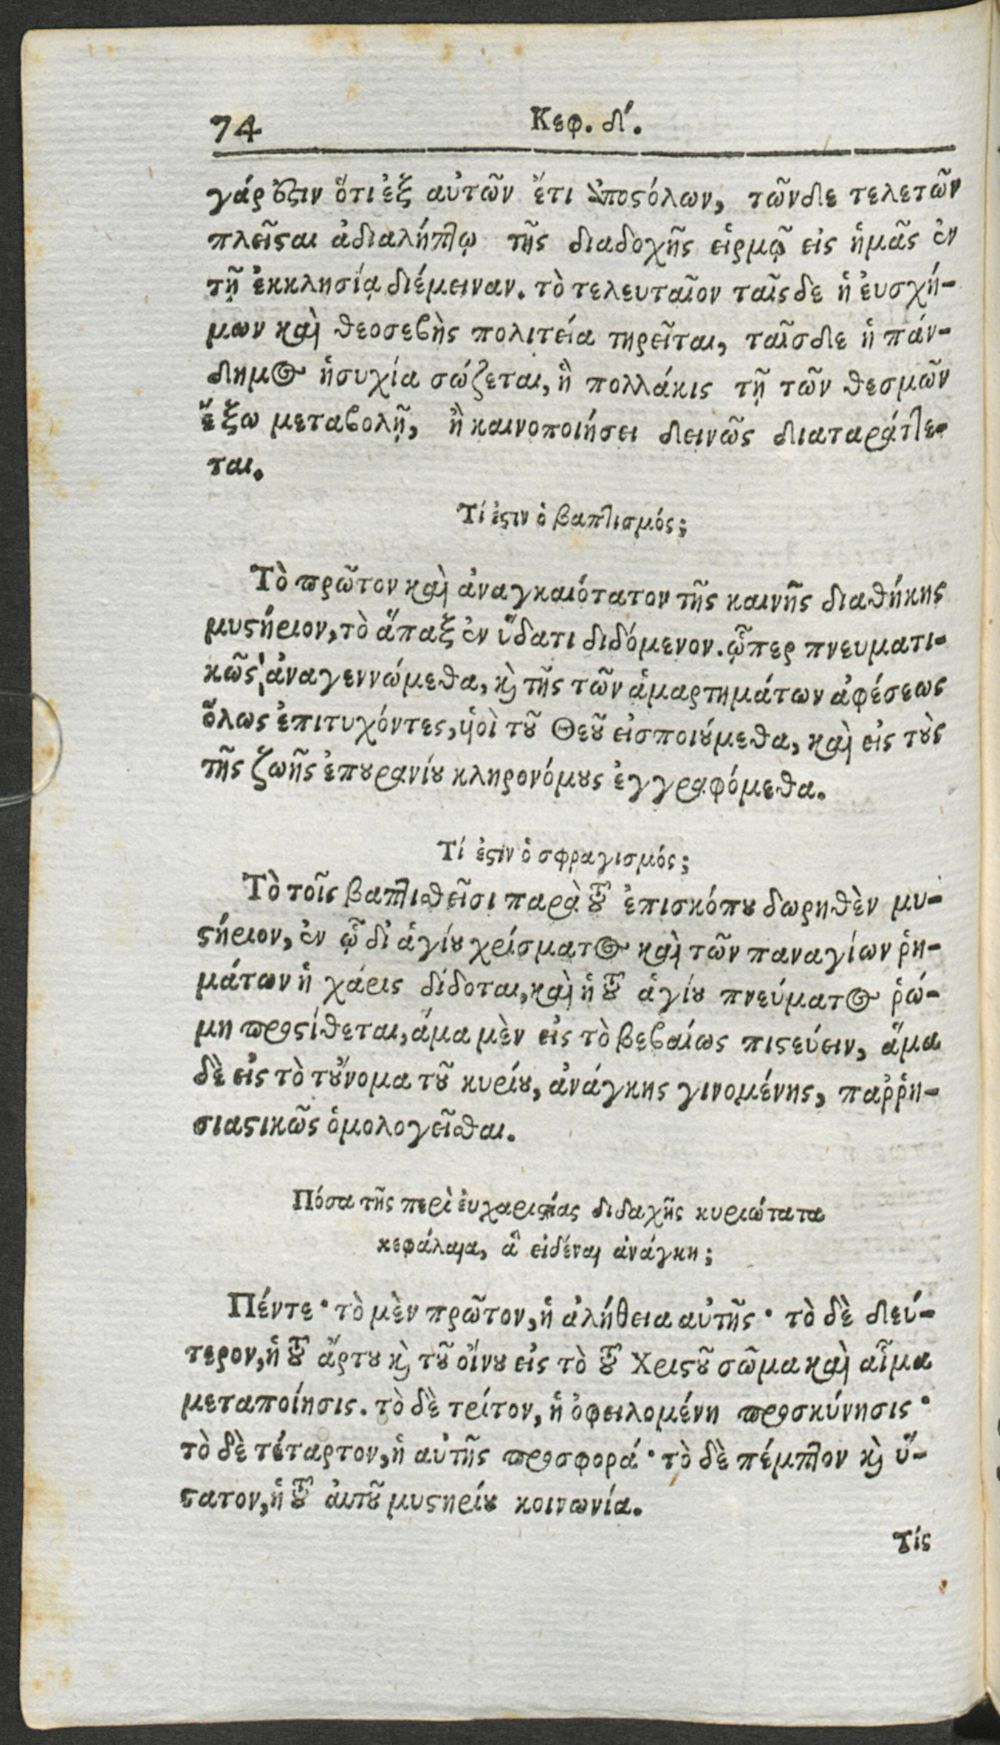 74 Κεφ. δ'.
γάρ ἐστιν ὅτι ἐξ αὐτῶν ἔτι ἀποστόλων, τῶνδε τελετῶν
πλεῖσται ἀδιαλήπτῳ τῆς διαδοχῆς εἱρμῷ εἰς ἡμᾶς ἐν
τῇ ἐκκλησίᾳ διέμειναν. τὸ τελευταῖον ταῖς δε ἡ ἐυσχή-
μων καὶ θεοσεβὴς πολιτεία τηρεῖται, ταῖσδε ἡ πάν-
δημος ἡσυχία σώζεται, ἣ πολλάκις τῇ τῶν θεσμῶν
ἔξω μεταβολῇ, ἢ καινοποιήσει δεινῶς διαταράττε-
ται.
Τί ἐστιν ὁ βαπτισμός;
Τὸ πρῶτον καὶ ἀναγκαιότατον τῆς καινῆς διαθήκης
μυστήριον, τὸ ἅπαξ ἐν ὕδατι διδόμενον. ᾧπερ πνευματι-
κῶς ἀναγεννώμεθα, καὶ τῆς τῶν ἁμαρτημάτων ἀφέσεως
ὅλως ἐπιτυχόντες, υἱοὶ τοῦ Θεοῦ εἰσποιούμεθα, καὶ εἰς τοὺς
τῆς ζωῆς ἐπουρανίου κληρονόμους ἐγγραφόμεθα.
Τί ἐστιν ὁ σφραγισμός;
Τὸ τοῖς βαπτισθεῖσι παρὰ τοῦ ἐπισκόπου δωρηθὲν μυ-
στήριον, ἐν ᾧ δι' ἁγίου χρίσματος καὶ τῶν παναγίων ῥη-
μάτων ἡ χάρις δίδοται, καὶ ἡ τοῦ ἁγίου πνεύματος ῥώ-
μη προστίθεται, ἅμα μὲν εἰς τὸ βεβαίως πιστεύειν, ἅμα
δὲ εἰς τὸ τοὔνομα τοῦ κυρίου, ἀνάγκης γινομένης, παῤῥη-
σιαστικῶς ὁμολογεῖσθαι.
Πόσα τῆς περὶ ἐυχαριστίας διδαχῆς κυριώτατα
κεφάλαια, ἃ εἰδέναι ἀνάγκη;
Πέντε· τὸ μὲν πρῶτον, ἡ ἀλήθεια αὐτῆς· τὸ δὲ δεύ-
τερον, ἡ τοῦ ἄρτου καὶ τοῦ οἴνου εἰς τὸ τοῦ Χριστοῦ σῶμα καὶ αἷμα
μεταποίησις. τὸ δὲ τρίτον, ἡ ὀφειλομένη προσκύνησις·
τὸ δὲ τέταρτον, ἡ αὐτῆς προσφορά· τὸ δὲ πέμπτον καὶ ὕ-
στατον, ἡ τοῦ αὐτοῦ μυστηρίου κοινωνία.
Τίς